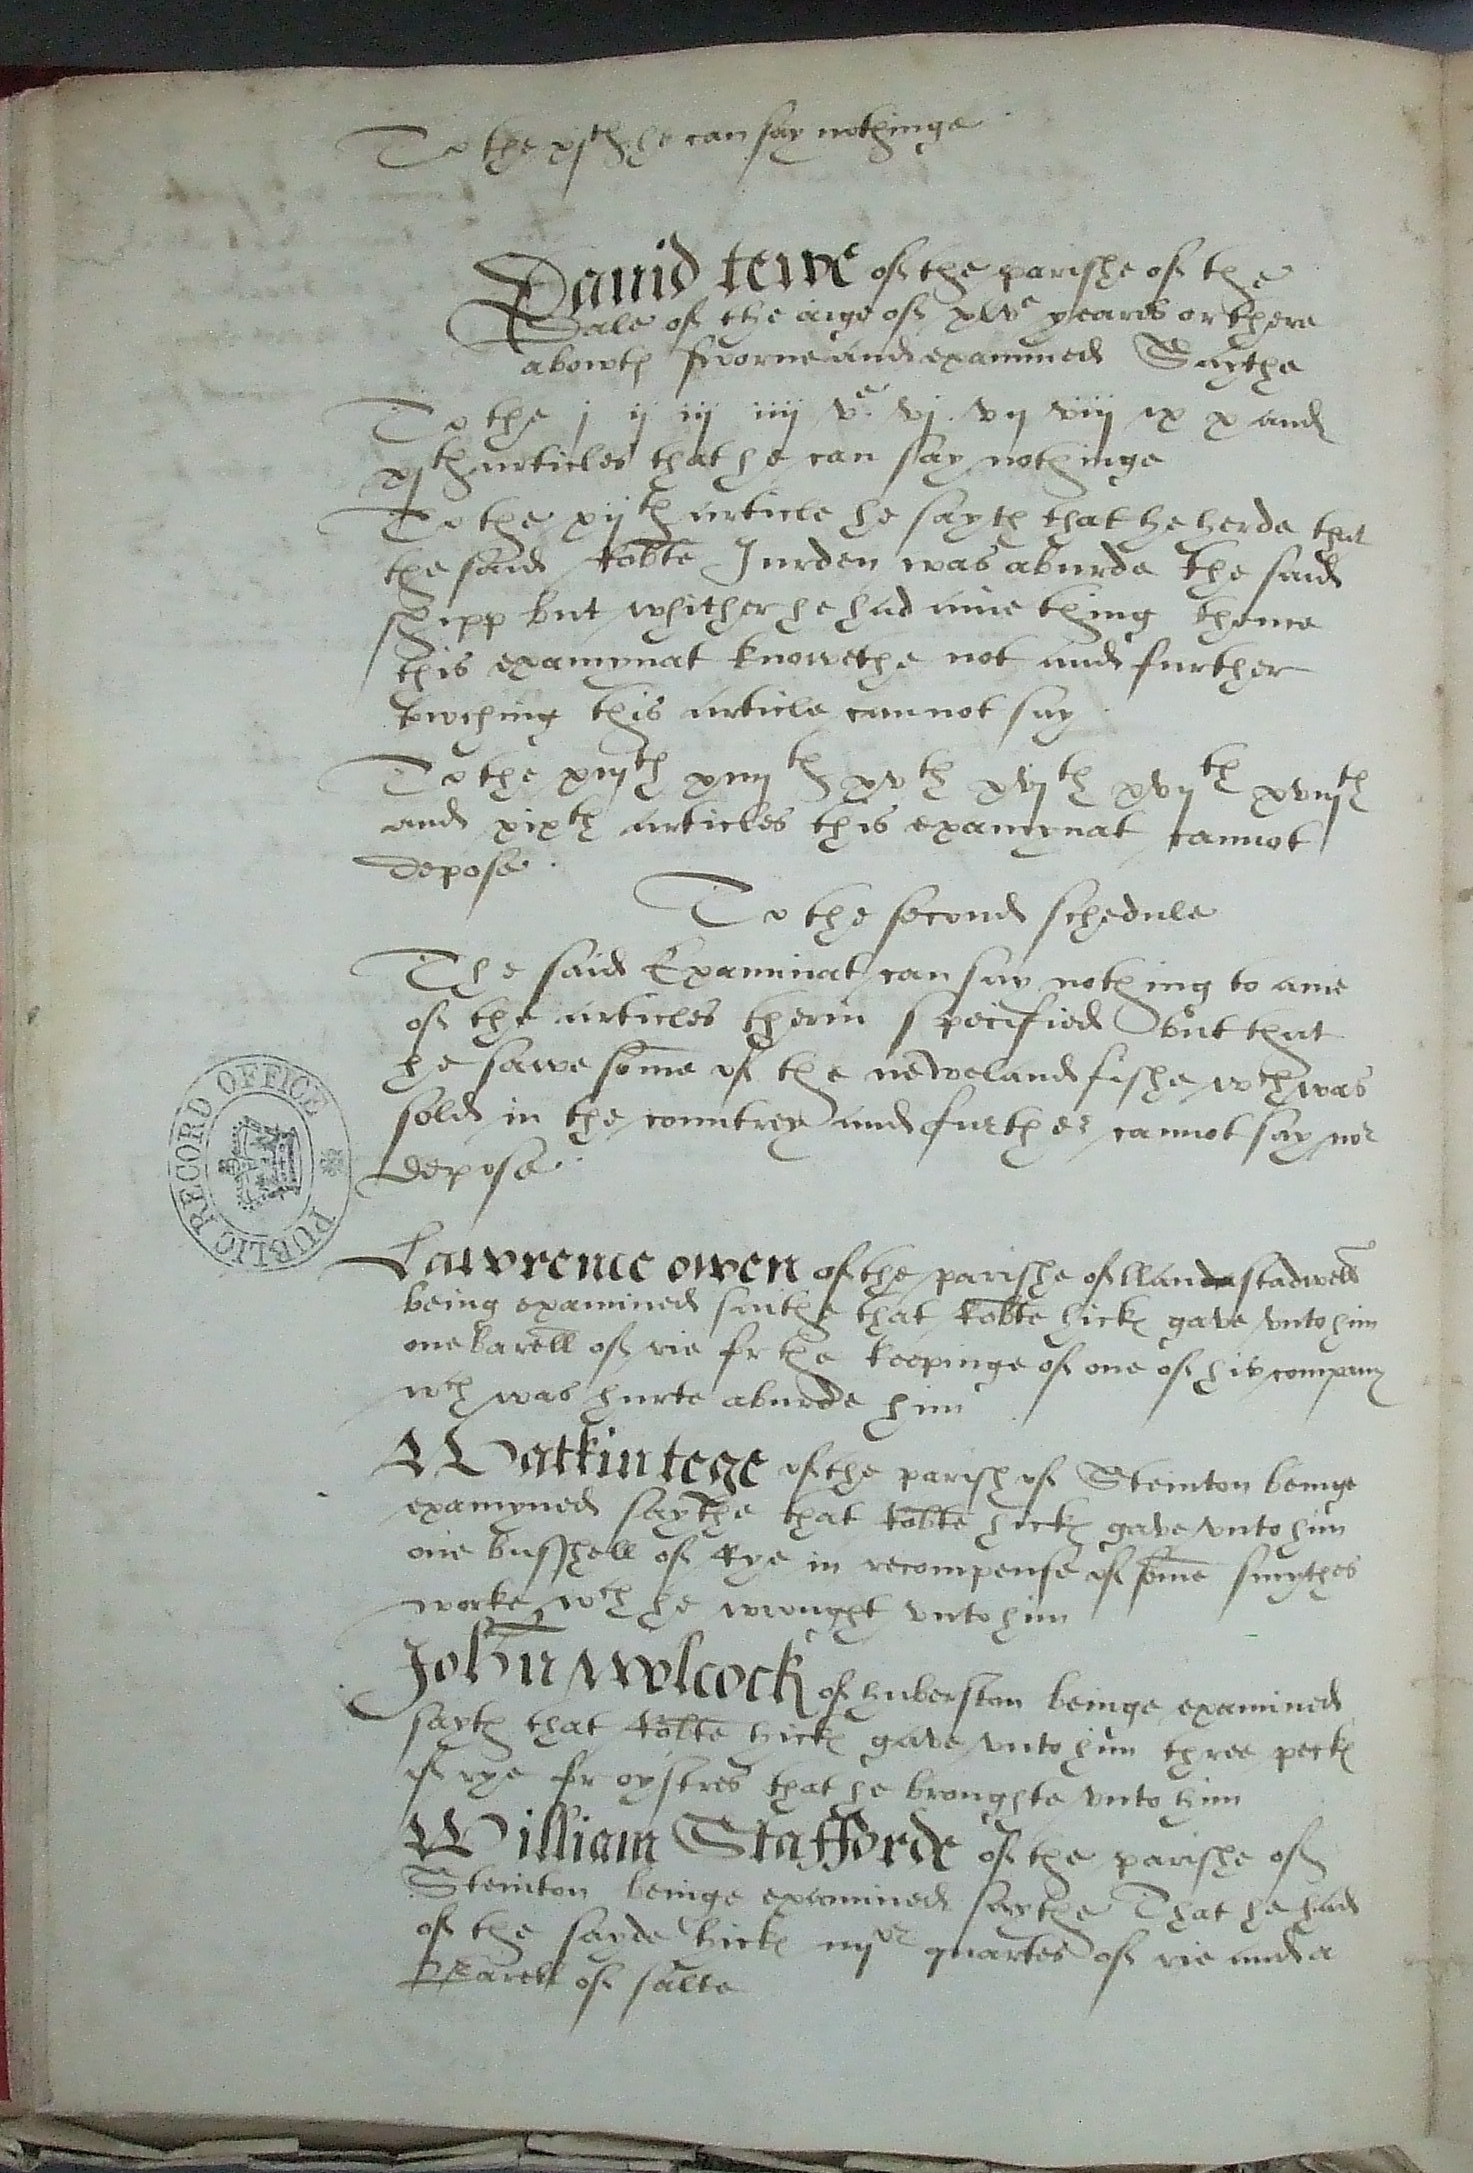 To the xjth he can say nothinge
Dauid tewe of the parishe of the
Dale of the aige of xlve yeares or there
abowth sworne and examined Saythe
To the j ij iij iiij ve vj vij viij ix x and
xjth articles that he can say nothinge
To the xijth article he sayth that he herde that
the said Robte Jurden was aburde the said
shipp but whither he had anie thing theme
this examynat knowethe not and further
towching this article cannot say
To the xiijth xiiijth xvth xvjth xvijth xviijth
and xixth articles this examynat cannot
depose
To the second schedule
The said Examinat can say nothing to anie
of the articles therin specified but that
he sawe some of the neweland fishe wch was
sold in the countrey and further cannot say nor
depose
PUBLIC RECORD OFFICE
Lawrence owen of the parishe of llanstadwell
being examined saithe that Robte hick gave vnto him
one barell of rie for the keepinge of one of his company
wch was hurte aburde him
Watkin tege of the parish of Steinton beinge
examyned saythe that Robte hick gave vnto him
one busshell of Rye in recompense of some smythes
worke wch he wrought vnto him
John Wolcock of huberston beinge examined
sayth that Robte hick gave vnto him three peck
of rye for oystres that he broughte vnto him
William Stafforde of the parishe of
Steinton beinge examined saythe That he had
of the sayde hick iiijor quartes of rie and a
Barell of salte